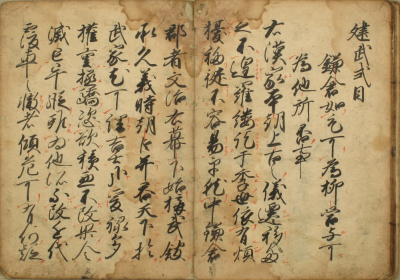 建武式目
鎌倉如元可為柳営与可
為他所否事
右漢家本朝上古之儀遷移多
之不遑羅縷迄于季世依有煩
擾移徙不容易乎就中鎌倉
郡者文治右幕下始構武館
承久義時朝臣并呑天下於
武家尤可謂吉土哉爰禄多
権重極驕恣欲積悪不改果令
滅亡畢縦雖為他所不改近代
覆車之轍者傾危可有何疑